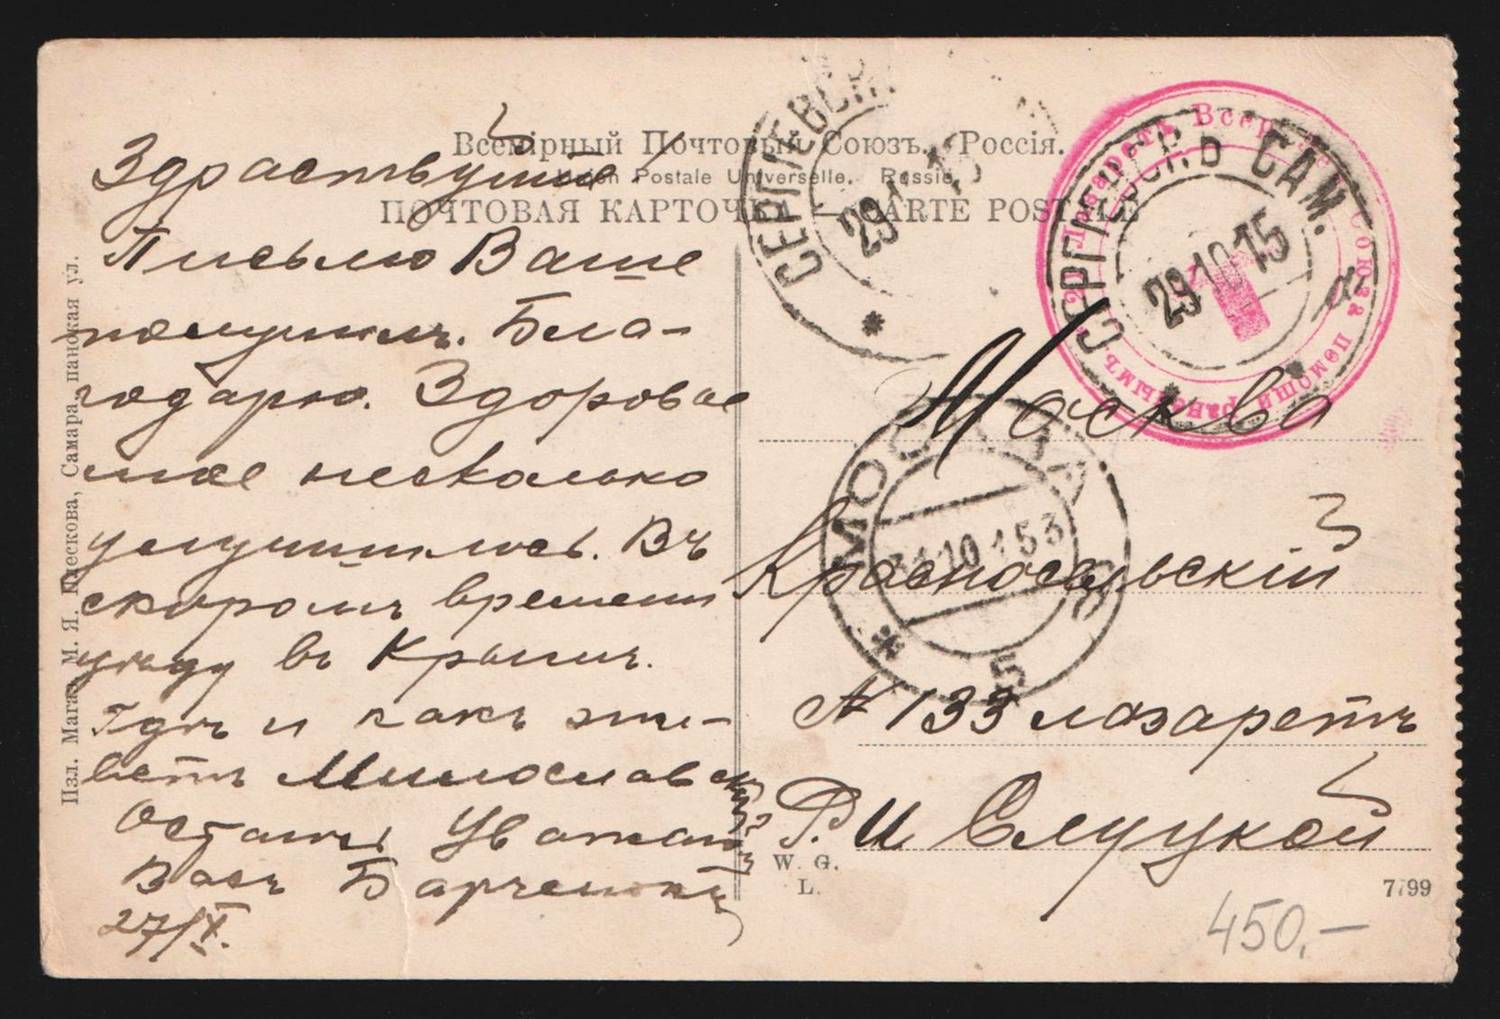 Всемірный Почтовый Союзъ. Россія.
Union Postale Universelle. Russie.
ПОЧТОВАЯ КАРТОЧКА — CARTE POSTALE
Здраствуйте!
Письмо Ваше
получилъ. Бла-
годарю. Здоровье
мое несколько
улучшилось. Въ
скоромъ времени
уѣду въ Крымъ.
Гдѣ и какъ жи-
ветъ Милославскій?
Остаюсь Уважающій
Васъ Барченскій
27/X.
Москва
Красносельскій
№ 133 лазаретъ
Р. И Слуцкой
W. G.
L.
7799
450,-
Изд. Магаз. М. Я. Пескова, Самара, панская ул.
СЕРГІЕВСКЪ
29 15
*
СЕРГІЕВСКЪ САМ.
29.10.15
Лазаретъ Всеросс. Союза помощи раненымъ
МОСКВА
31.10.15 3
* 5